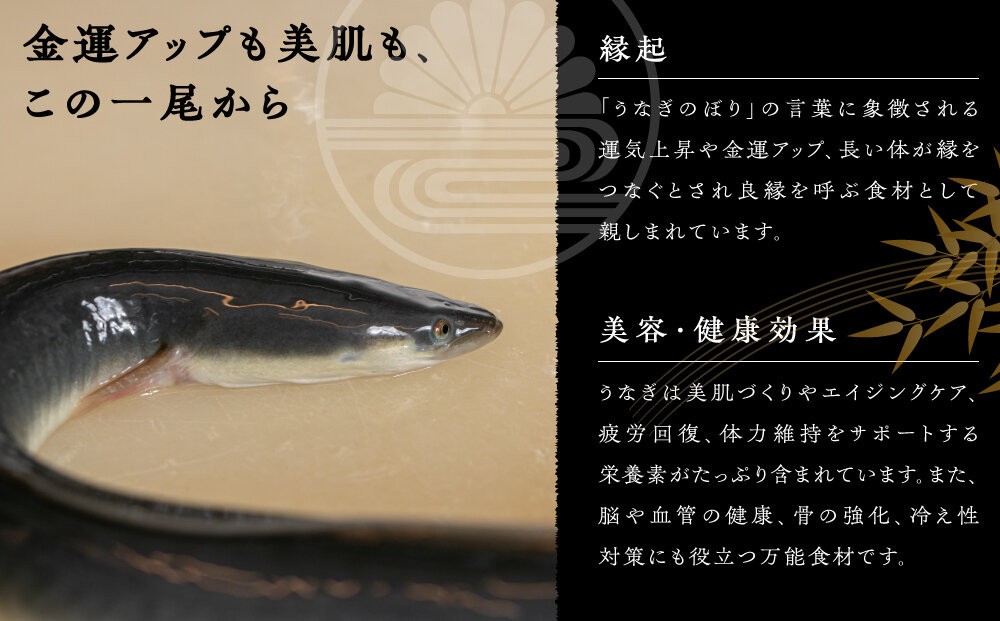 金運アップも美肌も、
この一尾から
縁起
「うなぎのぼり」の言葉に象徴される
運気上昇や金運アップ、長い体が縁を
つなぐとされ良縁を呼ぶ食材として
親しまれています。
美容・健康効果
うなぎは美肌づくりやエイジングケア、
疲労回復、体力維持をサポートする
栄養素がたっぷり含まれています。また、
脳や血管の健康、骨の強化、冷え性
対策にも役立つ万能食材です。